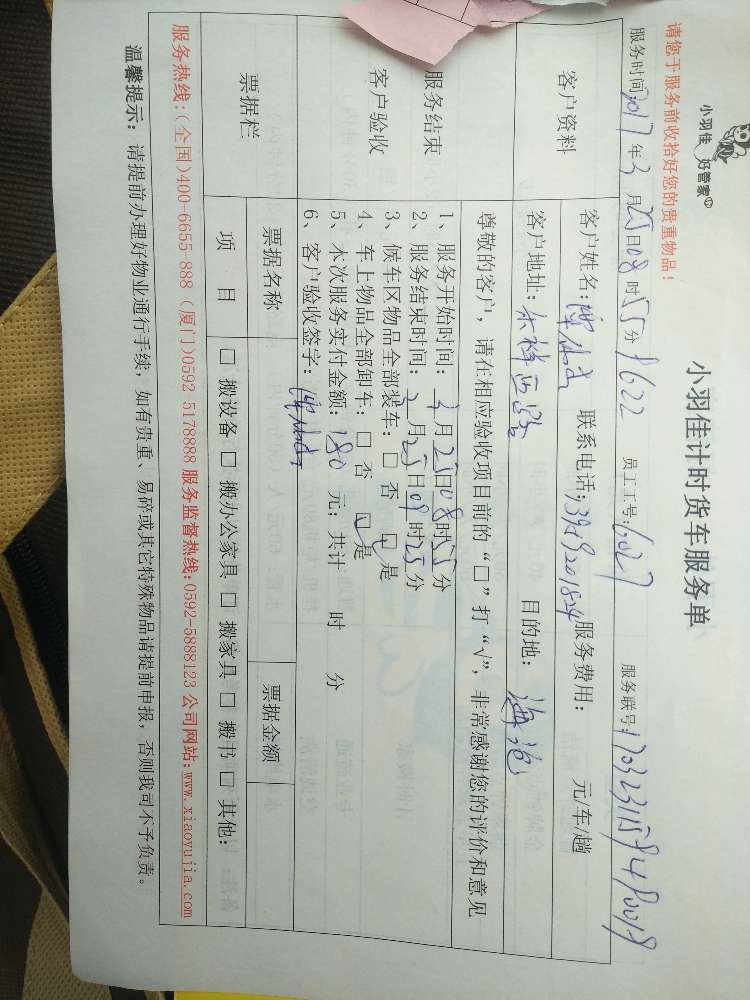 小羽佳 好管家
小羽佳计时货车服务单
请您于服务前收拾好您的贵重物品！
服务时间：2017年3月25日08时55分 员工工号：6027 服务联号：
客户资料
客户姓名： 联系电话： 服务费用： 元/车/趟
客户地址： 目的地：海沧
服务结束
客户验收
尊敬的客户，请在相应验收项目前的“□”打“√”，非常感谢您的评价和意见
1、服务开始时间：3月25日08时55分
2、服务结束时间：3月25日09时25分
3、候车区物品全部装车：□ 否 □ 是
4、车上物品全部卸车：□ 否 □ 是
5、本次服务实付金额：180 元；共计 时 分
6、客户验收签字：
票据栏
票据名称 票据金额
项 目 □ 搬设备 □ 搬办公家具 □ 搬家具 □ 搬书 □ 其他：
服务热线：(全国)400-6655-888 (厦门)0592-5178888 服务监督热线：0592-5888123 公司网站：www.xiaoyujia.com
温馨提示：请提前办理好物业通行手续，如有贵重、易碎或其它特殊物品请提前申报，否则我司不予负责。